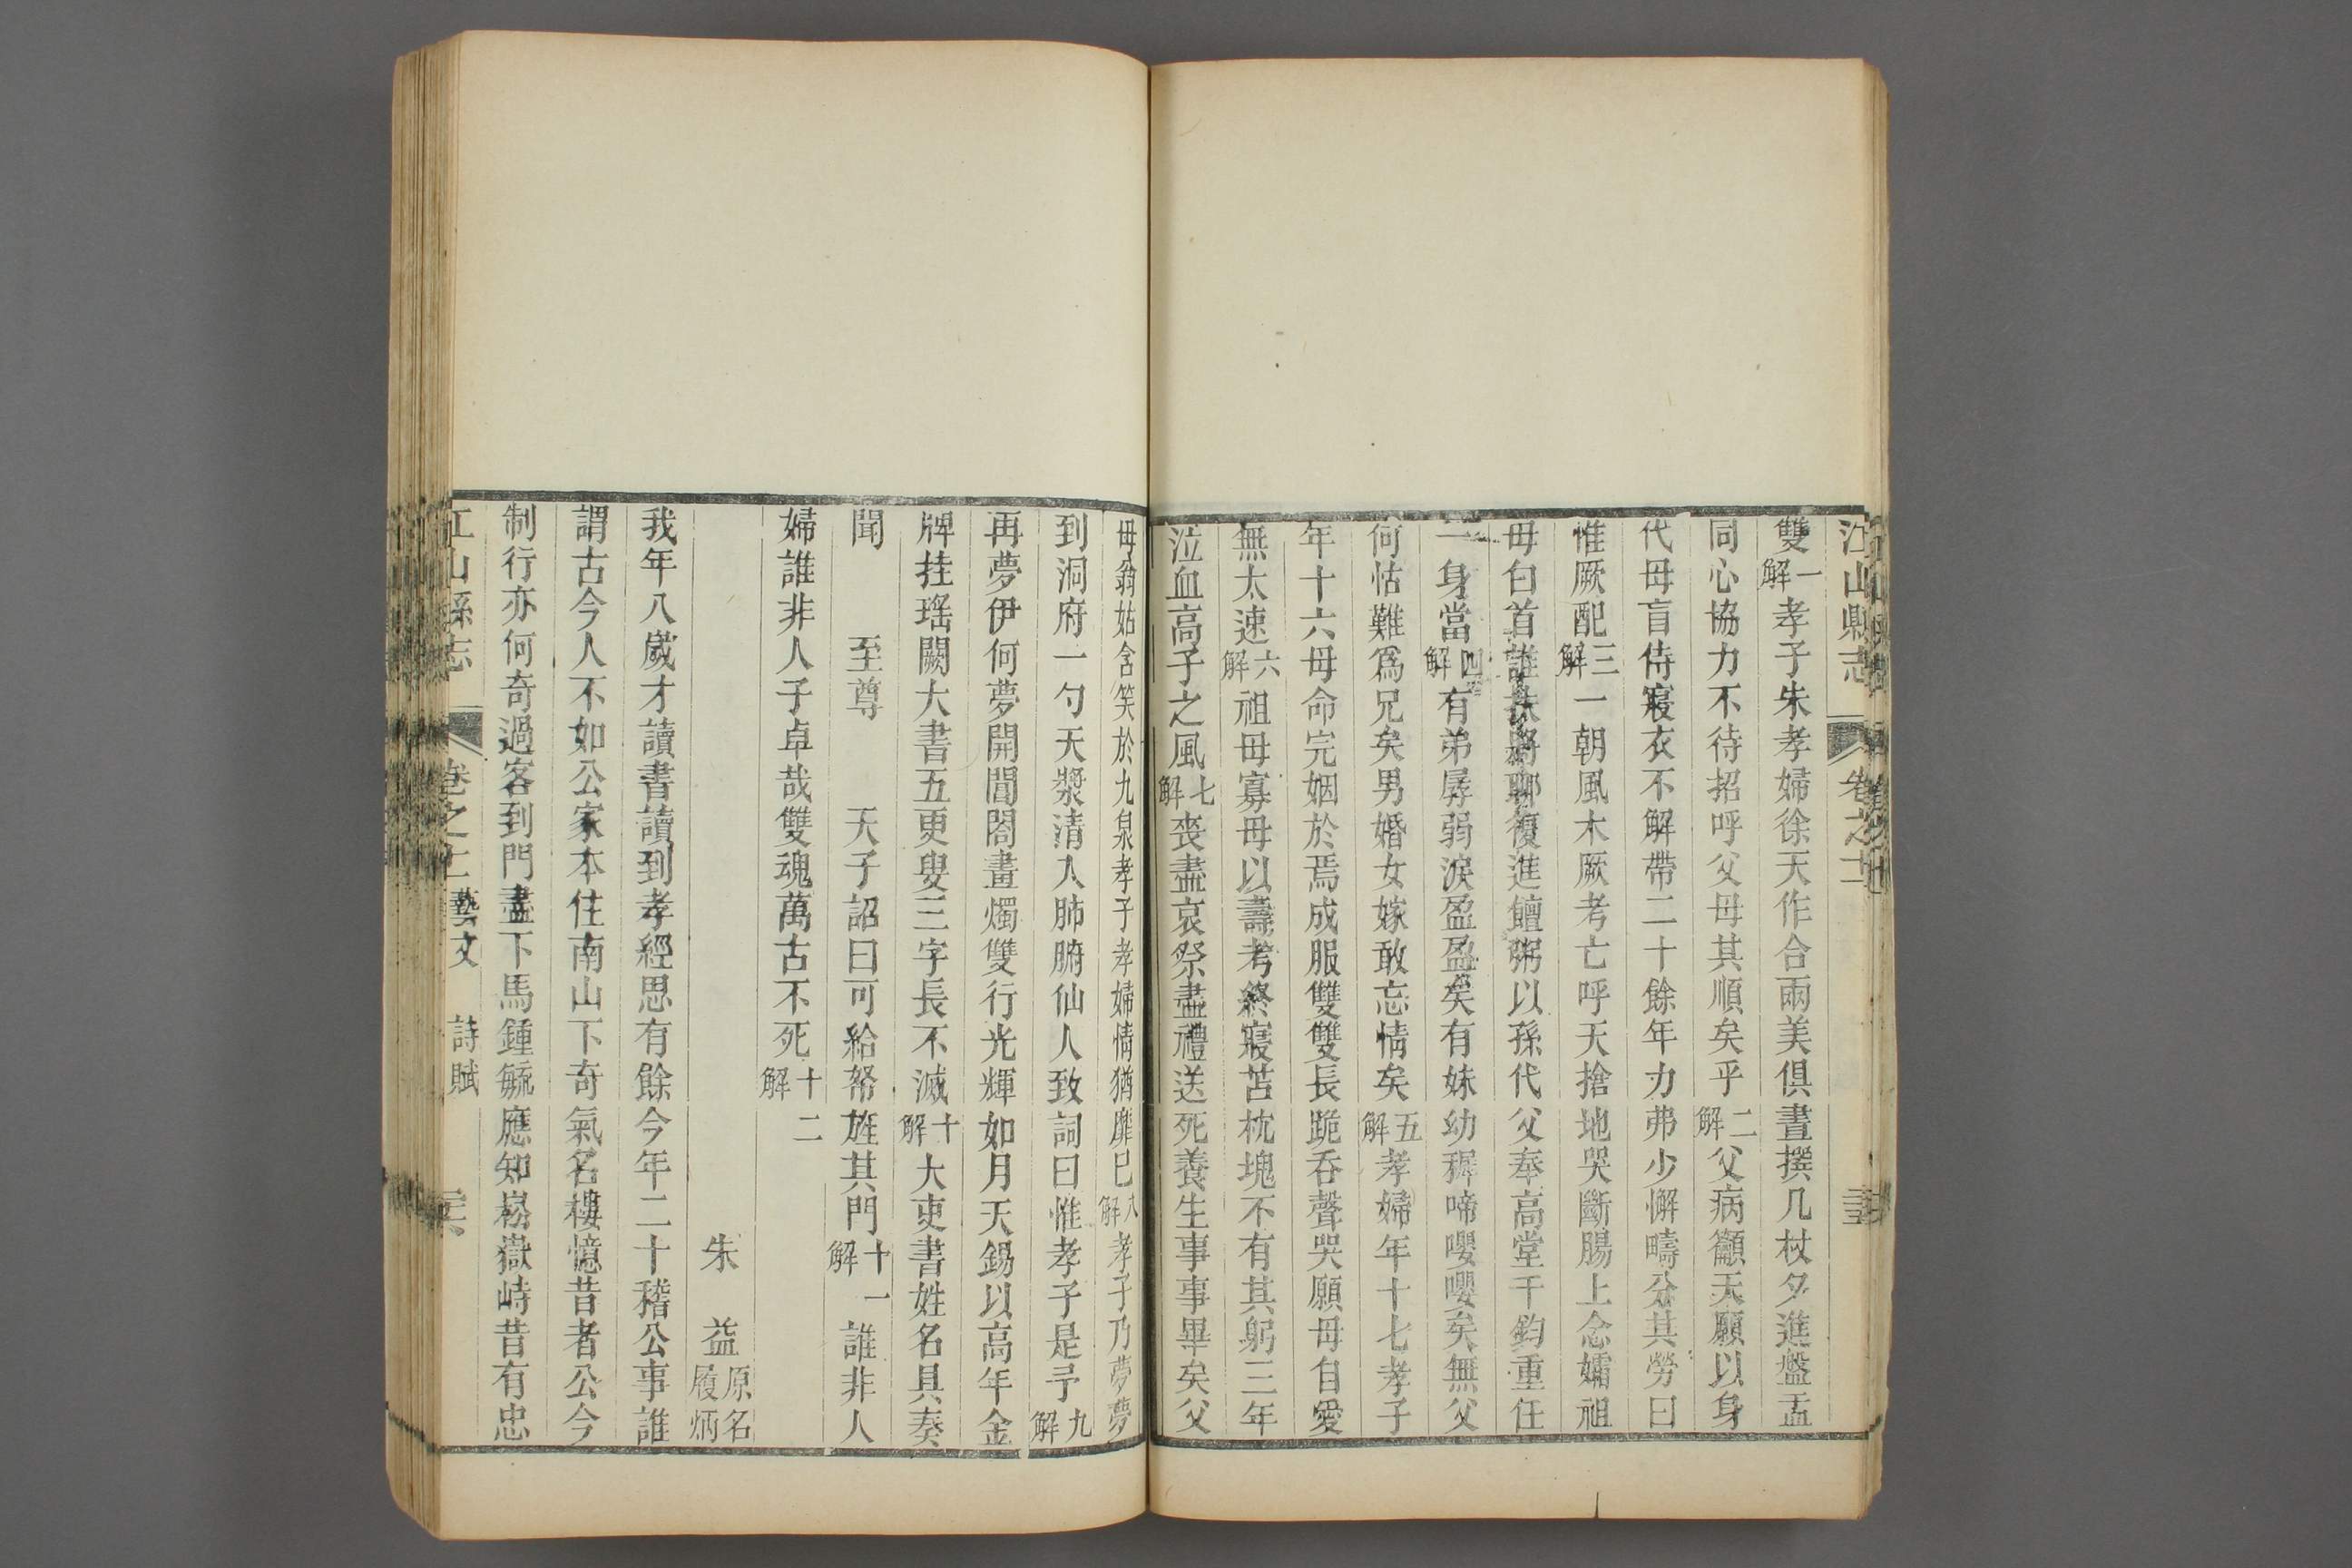 江山縣志 卷之十一
雙一解孝子朱孝婦徐天作合兩美俱晝撰几杖夕進盤盂
同心協力不待招呼父母其順矣乎二解父病籲天願以身
代母盲侍寢衣不解帶二十餘年力弗少懈疇分其勞曰
惟厥配三解一朝風木厥考亡呼天搶地哭斷腸上念孀祖
母白首誰扶將聊復進饘粥以孫代父奉高堂千鈞重任
一身當四解有弟孱弱淚盈盈矣有妹幼穉啼嚶嚶矣無父
何怙難爲兄矣男婚女嫁敢忘情矣五解孝婦年十七孝子
年十六母命完姻於焉成服雙雙長跪吞聲哭願母自愛
無太速六解祖母寡母以壽考終寢苫枕塊不有其躬三年
泣血高子之風七解喪盡哀祭盡禮送死養生事事畢矣父
母翁姑含笑於九泉孝子孝婦情猶靡已八解孝子乃夢夢
到洞府一勺天漿清入肺腑仙人致詞曰惟孝子是予九解
再夢伊何夢開閶閤畫燭雙行光輝如月天錫以高年金
牌挂瑤闕大書五更叟三字長不滅十解大吏書姓名具奏
聞 至尊 天子詔曰可給帑旌其門十一解誰非人
婦誰非人子卓哉雙魂萬古不死十二解
朱 益原名履炳
我年八歲才讀書讀到孝經思有餘今年二十稽公事誰
謂古今人不如公家本住南山下奇氣名樓憶昔者公今
制行亦何奇過客到門盡下馬鍾毓應知崧嶽峙昔有忠
江山縣志 卷之十一 藝文 詩賦